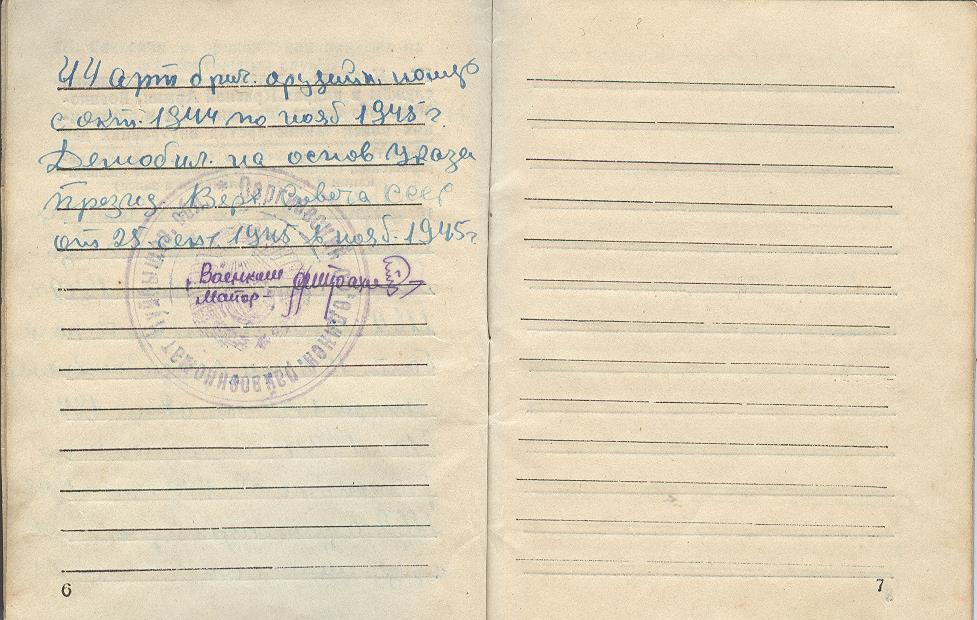 44 арт бриг. орудийн. номер
с окт. 1944 по нояб 1945 г.
Демобил. на основ Указа
Презид. Верх. Совета СССР
от 25 сент 1945 в нояб. 1945 г
Военком
майор
райвоенкомат
6
7